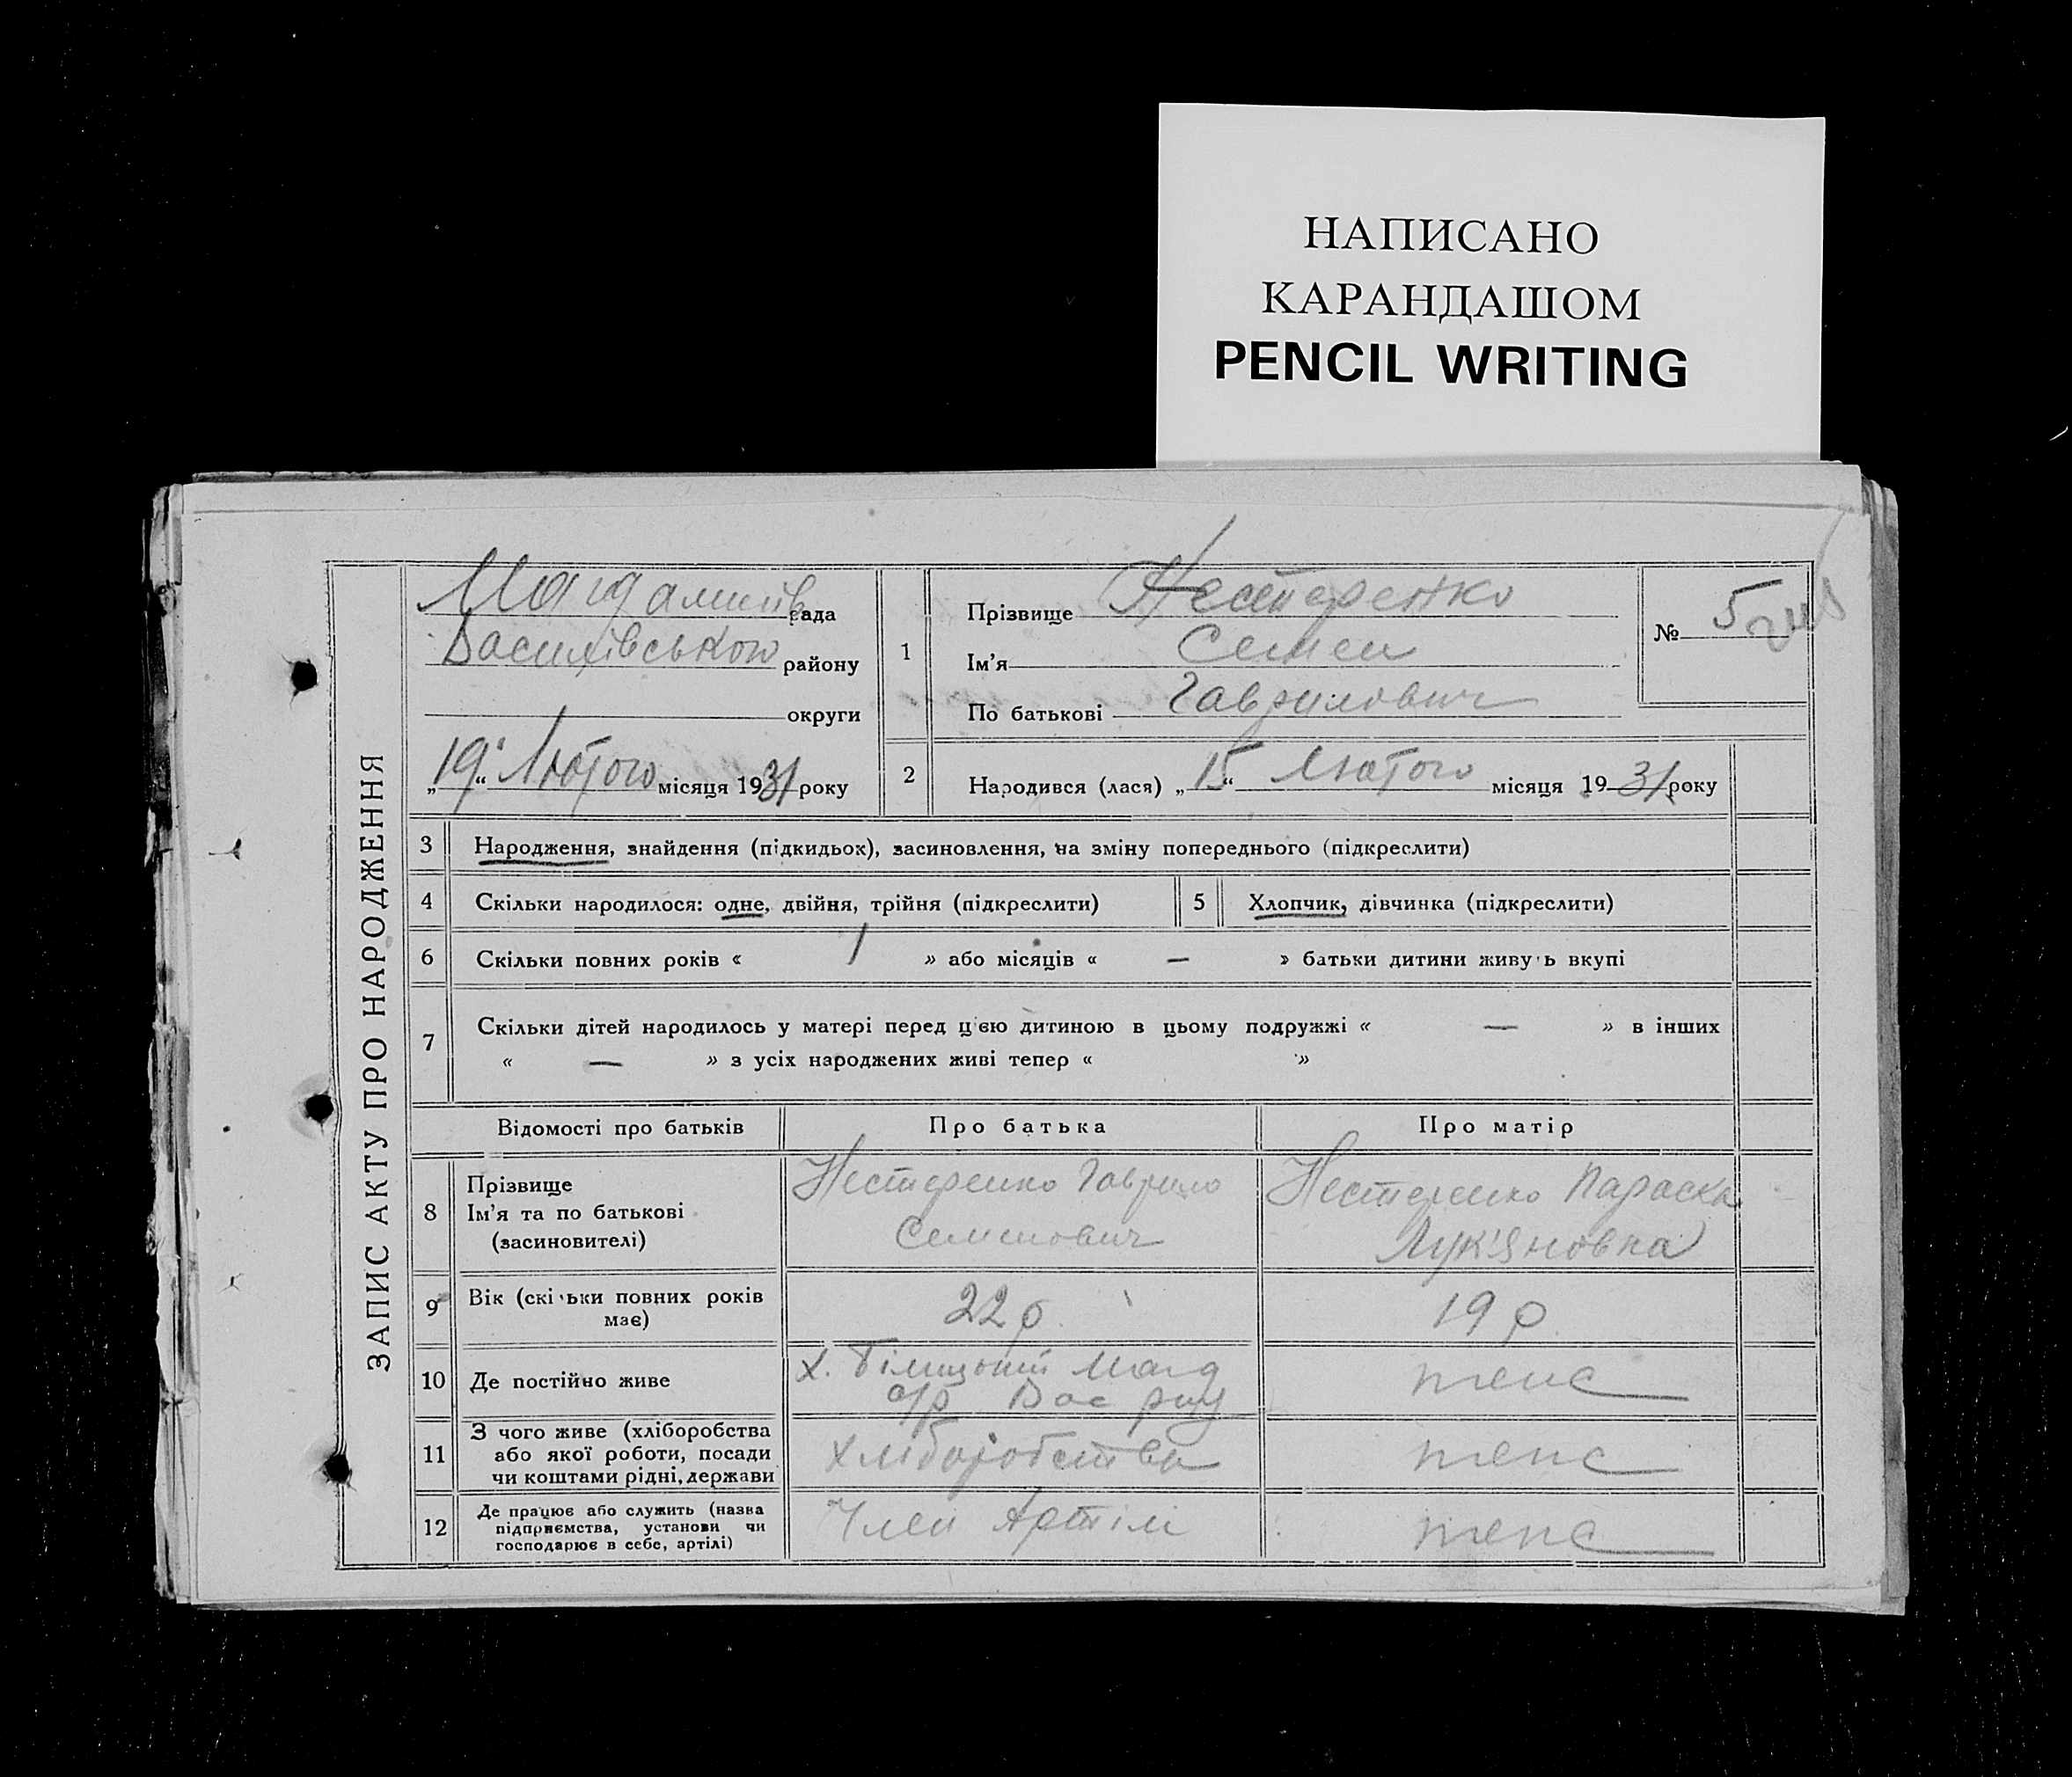 НАПИСАНО
КАРАНДАШОМ
PENCIL WRITING
ЗАПИС АКТУ ПРО НАРОДЖЕННЯ
рада
Василівського району
округи
„19“ Лютого місяця 1931 року
1
Прізвище Нестеренко
Ім’я Семен
По батькові Гаврилович
№ 5
2
Народився (лася) „15“ Лютого місяця 1931 року
3 Народження, знайдення (підкидьох), засиновлення, на зміну попереднього (підкреслити)
4 Скільки народилося: одне, двійня, трійня (підкреслити)
5 Хлопчик, дівчинка (підкреслити)
6 Скільки повних років « 1 » або місяців « — » батьки дитини живуть вкупі
7 Скільки дітей народилось у матері перед цією дитиною в цьому подружжі « — » в інших
« — » з усіх народжених живі тепер « »
Відомості про батьків Про батька Про матір
8
Прізвище
Ім’я та по батькові
(засиновителі)
Нестеренко Гаврило
Семенович
Нестеренко Параска
Лук'яновна
9
Вік (скільки повних років
має)
22 р
19 р
10 Де постійно живе
х. Магд
с/р Вас р-ну
теж
11
З чого живе (хліборобства
або якої роботи, посади
чи коштами рідні, держави
хліборобства
теж
12
Де працює або служить (назва
підприємства, установи чи
господарює в себе, артілі)
Член Артілі
теж